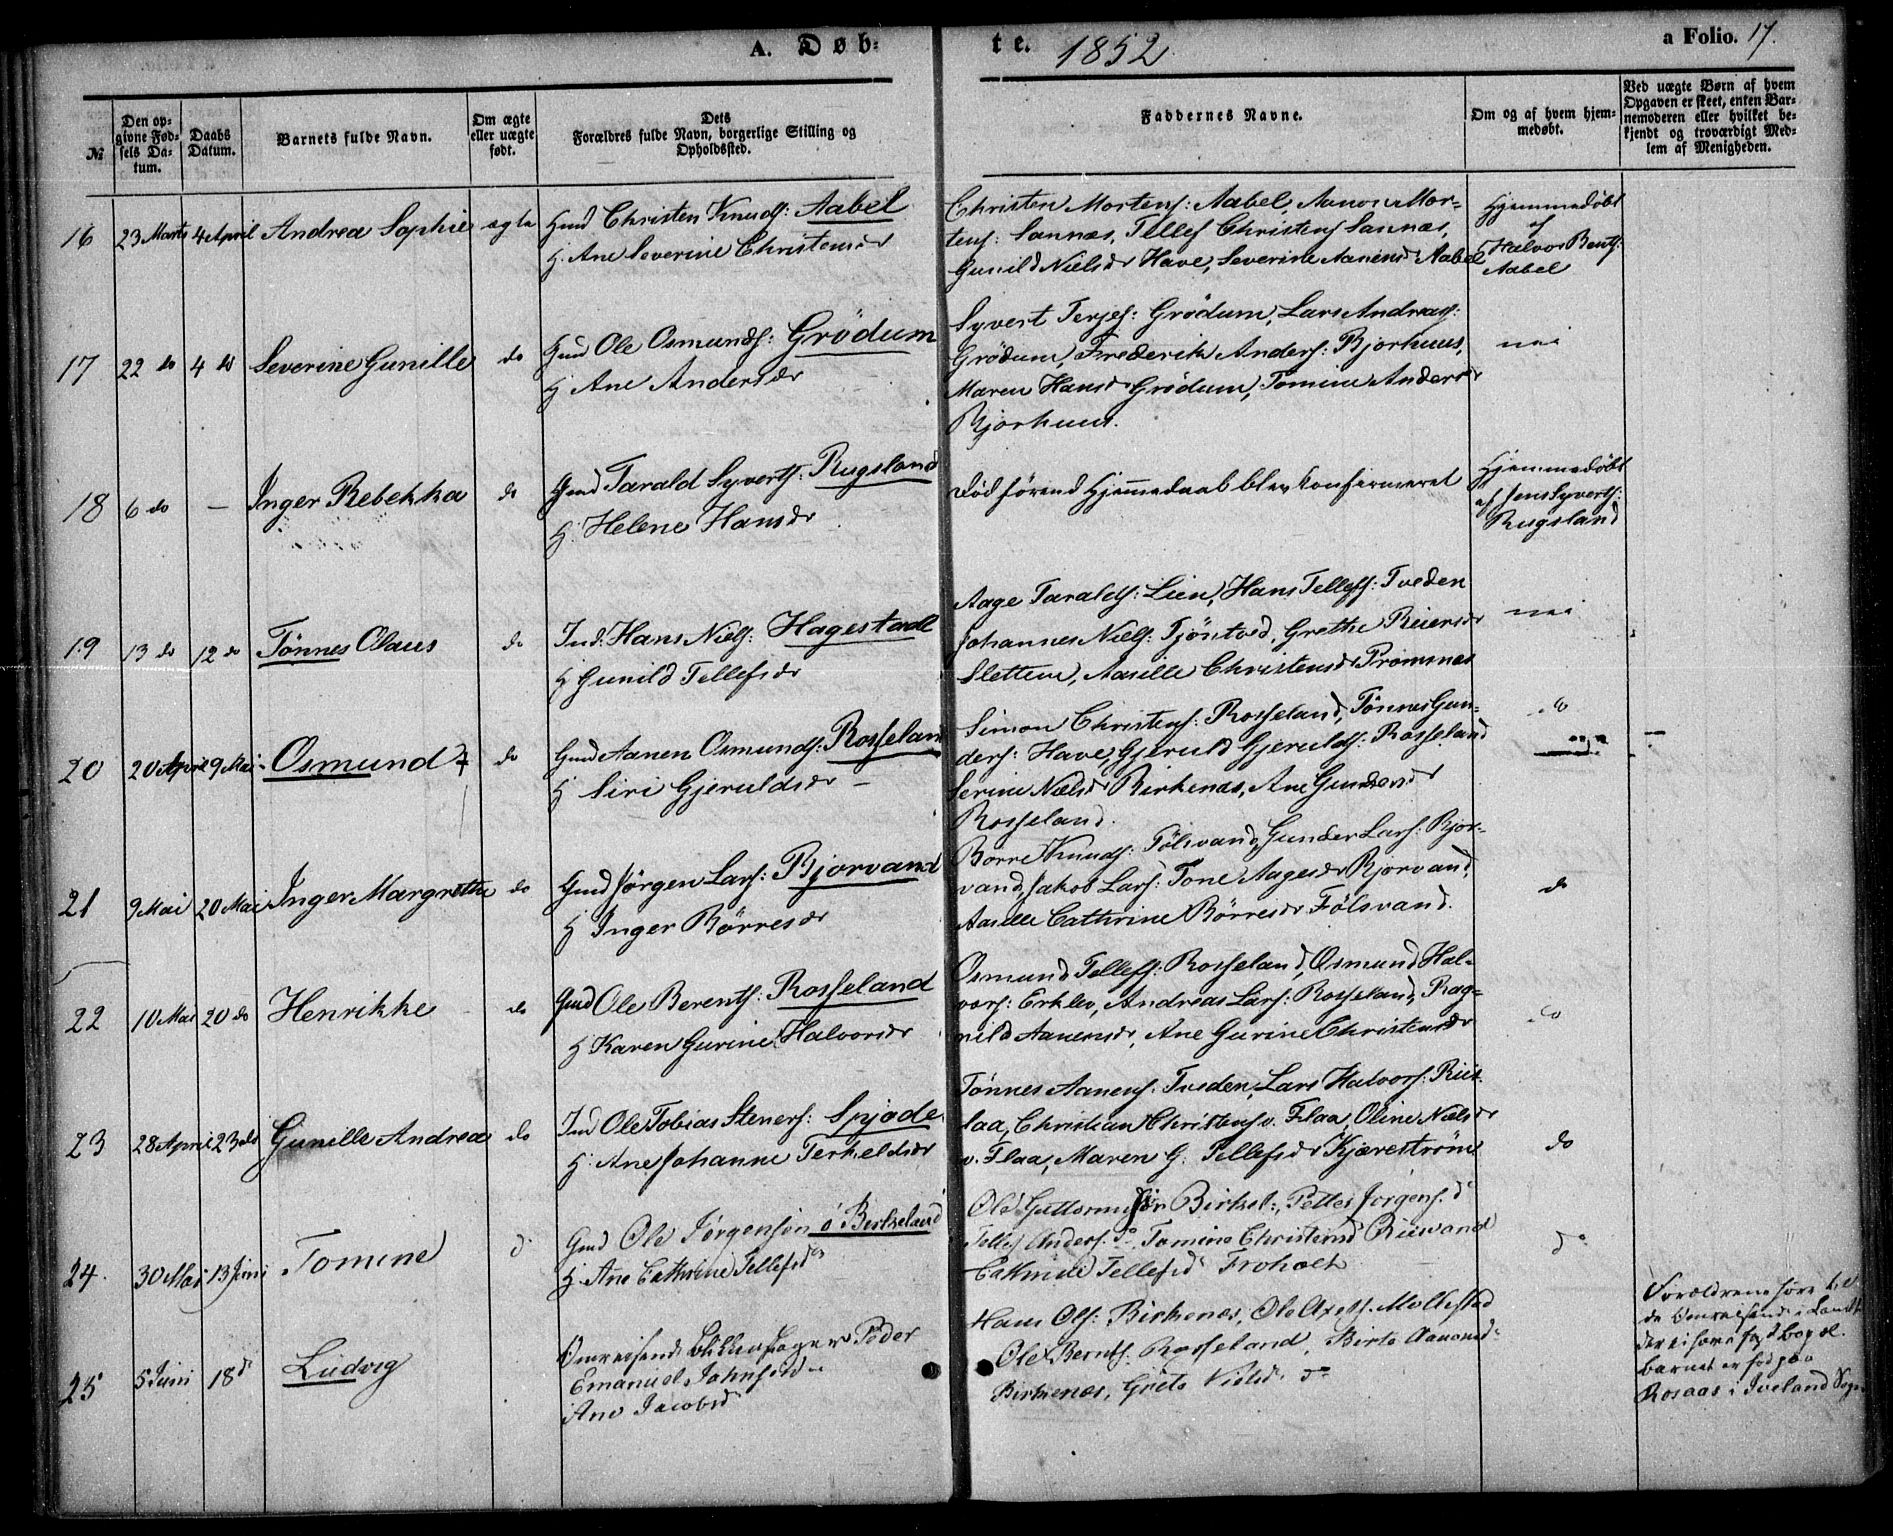 A. Døb-
te. 1852
a Folio. 17.
№
Den op-
givne Fød-
sels Da-
tum.
Daabs
Datum.
Barnets fulde Navn.
Om ægte
eller uægte
født.
Dets
Forældres fulde Navn, borgerlige Stilling og
Opholdssted.
Faddernes Navne.
Om og af hvem hjem-
medøbt.
Ved uægte Børn af hvem
Opgaven er skeet, enten Bar-
nemoderen eller hvilket be-
kjendt og troværdigt Med-
lem af Menigheden.
16 23 Marts 4 April Andrea Sophie ægte
Gmd Christen Knuds: Aabel
H. Ane Severine Christensdr
Christen Mortens: Aabel, Aanon Mor-
tens: Sannæs, Tellef Christens Sannæs,
Gunild Nielsdr Have, Severine Aanensdr Aabel
Hjemmedøbt
af
Halvor Bents:
Aabel
17 22 do 4 do Severine Gunille do
Gmd Ole Osmunds: Grödum
H Ane Andersdr
Syvert Terjes: Grödum, Lars Andreas:
Grödum, Frederik Anders: Bjorhuus,
Maren Hansdr Grödum, Tomine Andersdr
Bjorhuus.
nei
18 6 do — Inger Rebekka do
Gmd Tarald Syverts: Rugsland
H. Helene Hansdr
Død förend Hjemedaab blev konfirmeret
Hjemmedøbt
af Jens Syverts:
Rugsland
19 13 do 12 do Tönnes Olaus do
Ind: Hans Niels: Hagestad
H Gunild Tellefsdr
Aage Taralds: Lien, Hans Tellefs: Tveden
Johannes Niels: Tjöntved, Grethe Reiersdr
Slettene, Aasille Christensdr Promsnes
nei
20 20 April 9 Mai Osmund do
Gmd Aanen Osmunds: Rosseland
H Siri Gjeruldsdr —
Simon Christens: Rosseland, Tönnes Gun-
ders: Have, Gjeruld Gjerulds: Rosseland
Serine Nielsdr Birkenæs, Ane Gundersdr
Rosseland.
do
21 9 Mai 20 Mai Inger Margrethe do
Gmd Jörgen Lars: Bjorvand
H Inger Börresdr
Borre Knuds: Fölsvand, Gunder Lars: Bjor-
vand, Jakob Lars: Tone Aagesdr Bjorvand,
Aasille Cathrine Börresdr Fölsvand.
do
22 10 Mai 20 do Henrikke do
Gmd Ole Berents: Rosseland
H Karen Gurine Halvorsdr
Osmund Tellefs: Rosseland, Osmund Hal-
vors: Erklev, Andreas Lars: Rosseland, Rag-
nild Aanensdr, Ane Gurine Christensdr
do
23 28 April 23 do Gunille Andrea do
Ind Ole Tobias Steners: Spjode
H. Ane Johanne Terkeldsdr
Tönnes Aanens. Tveden, Lars Halvors: Ris-
laa, Christian Christens v. Flaa, Oline Nielsdr
v. Flaa, Maren G. Tellefsdr Kjærestrøm
do
24. 30 Mai 13 Juni Tomine d.
Gmd Ole Jørgensøn ö Birkeland
H. Ane Cathrine Tellefsd
Ole Guttormsøn Birkel:, Petter Jörgens. do
Tellef Anders. do. Tomine Christensd Risvand
Cathrine Tellefsd Froholt
do
25 5 Juni 18 d Ludvig
Omreisende Blikkenslager Peder
Emanuel Johnsen
Ane Jacobsd
Hans Ols: Birkenæs, Ole Axels. Mollestad
Ole Bernts. Rosseland, Birte Aanonsd
Birkenæs, Grete Nielsd. do
Forældrene høre til
de Omreisende i Landet
der ei have fast Bopæl.
Barnet er fød paa
Rosaas i Iveland Sogn